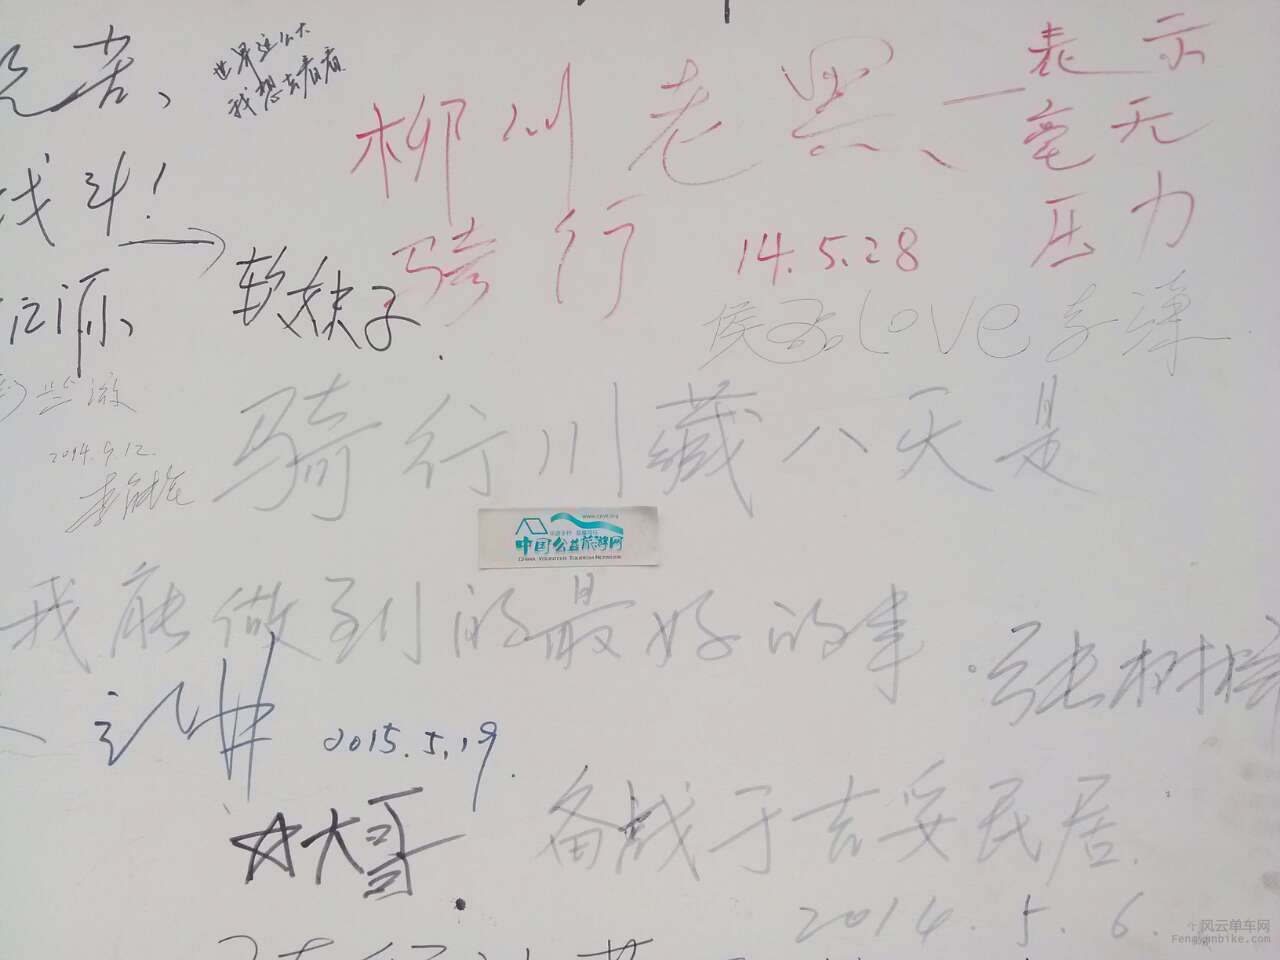 苦、
世界这么大
我想去看看
柳州老黑、一表示
毫无
压力
战斗!
骑行
14.5.28
软妹子.
love
骑行川藏八天是
2014.9.12.
www.cvyt.org
中国公益旅游网
CHINA VOLUNTEER TOURISM NETWORK
我能做到的最好的事
张树
2015.5.19.
☆大哥
备战于吉妥民居.
2014.5.6.
风云单车网
Fengyunbike.com